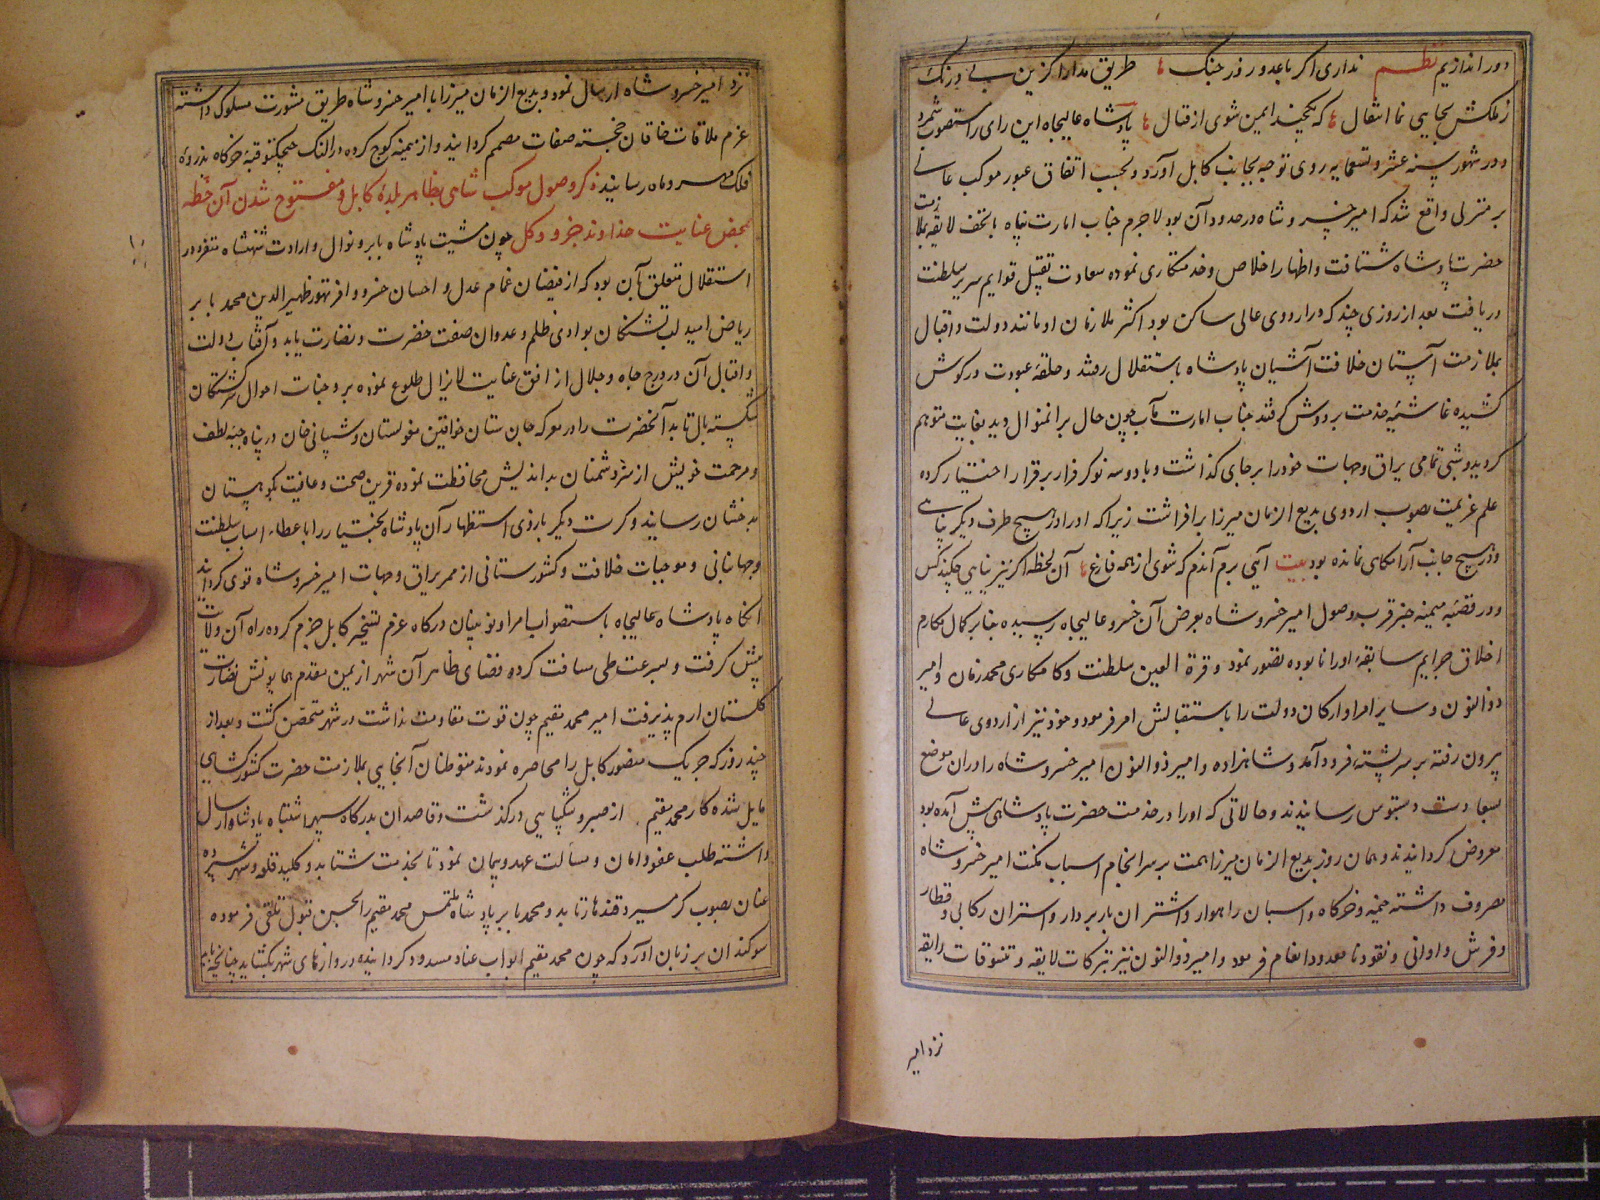 دور اندازیم نظم نداری اگر با عدو روز جنگ طریق مدارا گزین بی درنگ
ز ملکش بجایی نما انتقال که گنجد ایمن شوی از قتال پادشاه عالیجاه این رای را مستصوب شمرده
و در شهور سنه عشر و تسعمایه روی توجه بجانب کابل آورد و بحسب اتفاق عبور موکب عالی
بر منزلی واقع شد که امیر خسرو شاه در حدود آن بود لاجرم جناب امارت پناه با تحف لایقه بملازمت
حضرت پادشاه شتافت و اظهار اخلاص و خدمتکاری نموده سعادت تقبیل قوایم سریر سلطنت
دریافت بعد از روزی چند که در اردوی عالی ساکن بود اکثر ملازمان او مانند دولت و اقبال
بملازمت آستان خلافت آشیان پادشاه باستقلال رفتند و حلقه عبودیت در گوش
کشیده غاشیه خدمت بر دوش گرفتند جناب امارت مآب چون حال بر انمنوال دید بغایت متوهم
گردید و شبی تمامی یراق و جهات خود را بر جای گذاشت و با دو سه نوکر فرار بر قرار اختیار کرده
علم عزیمت بصوب اردوی بدیع الزمان میرزا برافراشت زیرا که او را در هیچ طرف دیگر پناهی
و در هیچ جانب آرامگاهی نمانده بود بیت آیی برم آندم که شوی از همه فارغ آن لحظه اگر نیز نیایی چکند کس
و در قصبه میمنه خبر قرب وصول امیر خسرو شاه بعرض آن خسرو عالیجاه رسیده بنابر کمال مکارم
اخلاق جرایم سابقه او را نابوده تصور نمود و قرة العین سلطنت و کامکاری محمد زمان و امیر
ذوالنون و سایر امرا و ارکان دولت را باستقبالش امر فرمود و خود نیز از اردوی عالی
بیرون رفته بر سر پشته فرود آمد و شاهزاده و امیر ذوالنون امیر خسرو شاه را در ان موضع
بسعادت دستبوس رسانیدند و حالاتی که او را در خدمت حضرت پادشاهی پیش آمده بود
معروض گردانیدند و همان روز بدیع الزمان میرزا همت بر سرانجام اسباب مکنت امیر خسرو شاه
مصروف داشته خیمه و خرگاه و اسبان راهوار و اشتران باربردار و استران رکابی و قطار
و فرش و اوانی و نقود نامعدود انعام فرمود و امیر ذوالنون نیز تبرکات لایقه و تنسوقات رایقه
نزد امیر
نزد امیر خسرو شاه ارسال نمود و بدیع الزمان میرزا با امیر خسرو شاه طریق مشورت مسلوک داشته
عزم ملاقات خاقان خجسته صفات مصمم گردانید و از میمنه کوچ کرده در النک چیچکتو قبه خرگاه بذروه
فلک مهر و ماه رسانید ذکر وصول موکب شاهی بظاهر بلده کابل و مفتوح شدن آن خطه
بمحض عنایت خداوند جزو و کل چون مشیت پادشاه بابر و نوال و ارادت شهنشاه متفرد در
استقلال متعلق بآن بود که از فیضان غمام عدل و احسان خسرو وافر تهور ظهیر الدین محمد بابر
ریاض امید لب تشنگان بوادی ظلم و عدوان صفت خضرت و نضارت یابد و آفتاب دولت
و اقبال آن دروج جاه و جلال از افق عنایت لایزال طلوع نموده بر وجنات احوال سرگشتگان
شکسته بال تابد آنحضرت را در معرکه جان ستان خواقین مغولستان و شیبانی خان در پناه جبه لطف
و مرحمت خویش از شر دشمنان بداندیش محافظت نموده قرین صحت و عافیت بکوهستان
بدخشان رسانید و کرت دیگر بازوی استظهار آن پادشاه بختیار را باعطاء اسباب سلطنت
و جهانبانی و موجبات خلافت و کشورستانی از ممر یراق و جهات امیر خسرو شاه قوی گردانید
آنگاه پادشاه عالیجاه باستصواب امرا و نوئینان درگاه عزم تسخیر کابل جزم کرده راه آن ولایت
پیش گرفت و بسرعت طی مسافت کرده فضای ظاهر آن شهر از یمن مقدم همایونش نضارت
گلستان ارم پذیرفت امیر محمد مقیم چون قوت مقاومت نداشت در شهر متحصن گشت و بعد از
چند روز که جریک منصور کابل را محاصره نمودند متوطنان آنجایی بملازمت حضرت کشورگشایی
مایل شده کار محمد مقیم از صبر و شکیبایی درگذشت و قاصدان بدرگاه سپهر اشتباه پادشاه ارسال
داشته طلب عفو و امان و مسألت عهد و پیمان نمود تا بخدمت شتابد و کلید قلعه و شهر سپرده
عنان بصوب گرمسیر و قندهار تابد و محمد بابر پادشاه ملتمس محمد مقیم را بحسن قبول تلقی فرموده
سوگندان بر زبان آورد که چون محمد مقیم ابواب عناد مسدود گردانیده دروازهای شهر بگشاید چنانچه باید